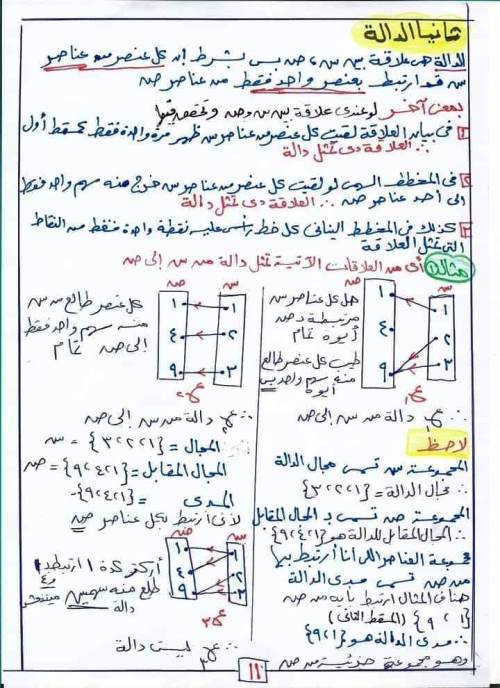 ثانيا الدالة
الدالة هى علاقة بين س ، ص بس بشرط إن كل عنصر من عناصر
س قد ارتبط بعنصر واحد فقط من عناصر ص
بمعنى آخر لو عندى علاقة بين س وص وتحقق فيها
١ فى بيان العلاقة لقيت كل عنصر من عناصر س ظهر مرة واحدة فقط كمسقط أول
∴ العلاقة دى تمثل دالة
٢ فى المخطط السهمى لو لقيت كل عنصر من عناصر س خرج منه سهم واحد فقط
الى أحد عناصر ص ∴ العلاقة دى تمثل دالة
٣ كذلك فى المخطط البيانى كل خط رأسى عليه نقطة واحدة فقط من النقاط
التى تمثل العلاقة
مثال ١ أى من العلاقات الآتية تمثل دالة من س إلى ص
س ص
١ ١
٢ ٤
٣ ٩
ع١
هل كل عناصر س
مرتبطة بـ ص
أيوه تمام
طيب كل عنصر طالع
منه سهم واحد بس
أيوه
∴ ع١ دالة من س إلى ص
لاحظ
المجموعة س تسمى مجال الدالة
∴ مجال الدالة = {١،٢،٣}
المجموعة ص تسمى بـ المجال المقابل
∴ المجال المقابل للدالة هو {١،٤،٩}
مجموعة العناصر اللى أنا أرتبط بيها
من ص تسمى مدى الدالة
هنا فى المثال ارتبط بايه من ص
{١،٩} (المسقط الثانى)
∴ مدى الدالة هو {١،٩}
وهو مجموعة جزئية من ص
س ص
١ ١
٢ ٤
٣ ٩
ع٢
كل عنصر طالع من س
منه سهم واحد فقط
إلى ص تمام
∴ ع٢ دالة من س إلى ص
المجال = {١،٢،٣} = س
المجال المقابل = {١،٤،٩} = ص
المدى = {١،٤،٩}
لأنى أرتبط بكل عناصر ص
س ص
١ ١
٢ ٤
٣ ٩
ع٣
طلع منه سهمين مينفعش
دالة
∴ ع٣ ليست دالة
١١